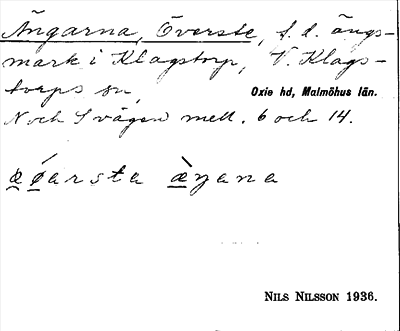 Ängarna, Överste, f. d. ängs-
mark i Klagstorp, V. Klags-
torps sn, Oxie hd, Malmöhus län.
N och S vägen mell. 6 och 14.
æǿarsta æ̀ŋana
NILS NILSSON 1936.